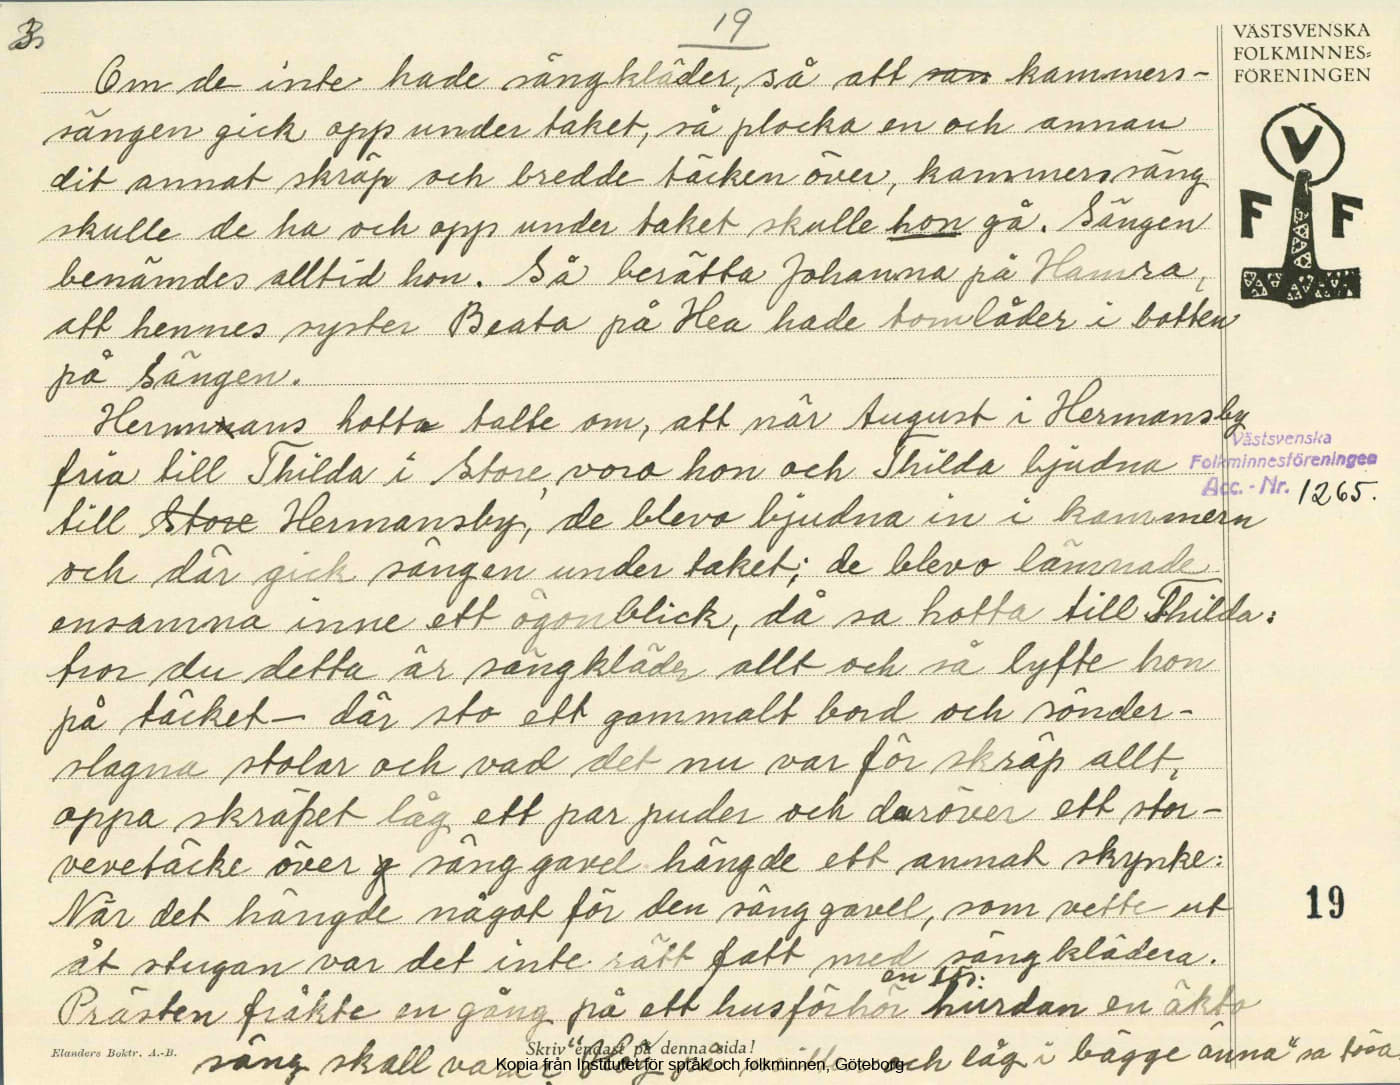 19
Om de inte hade sängkläder, så att kammers-
sängen gick opp under taket, så plocka en och annan
dit annat skräp och bredde täcken över, kammerssäng
skulle de ha och opp under taket skulle hon gå. Sängen
benämdes alltid hon. Så berätta Johanna på Hamra,
att hennes syster Beata på Hea hade tomlåder i botten
på Sängen.
Hermans hotta talte om, att när August i Hermansby
fria till Thilda i Store, voro hon och Thilda bjudna
till Store Hermansby, de blevo bjudna in i kammern
och där gick sängen under taket; de blevo lämnade
ensamna inne ett ögonblick, då sa hotta till Thilda:
tror du detta är sängkläder allt och så lyfte hon
på täcket – där sto ett gammalt bord och sönder-
slagna stolar och vad det nu var för skräp allt,
oppa skräpet låg ett par puder och daröver ett stor-
vevetäcke över säng gavel hängde ett annat skynke:
När det hängde något för den säng gavel, som vette ut
åt stugan var det inte rätt fatt med sängklädera.
en tös:
Prästen fråkte en gång på ett husförhör hurdan en äkta
säng skall vara och låg i bägge änna" sa tösa
VÄSTSVENSKA
FOLKMINNES=
FÖRENINGEN
V
F F
Västsvenska
Folkminnesföreningen
Acc.-Nr. 1265.
19
Elanders Boktr. A.-B.
Skriv endast på denna sida!
Kopia från Institutet för språk och folkminnen, Göteborg